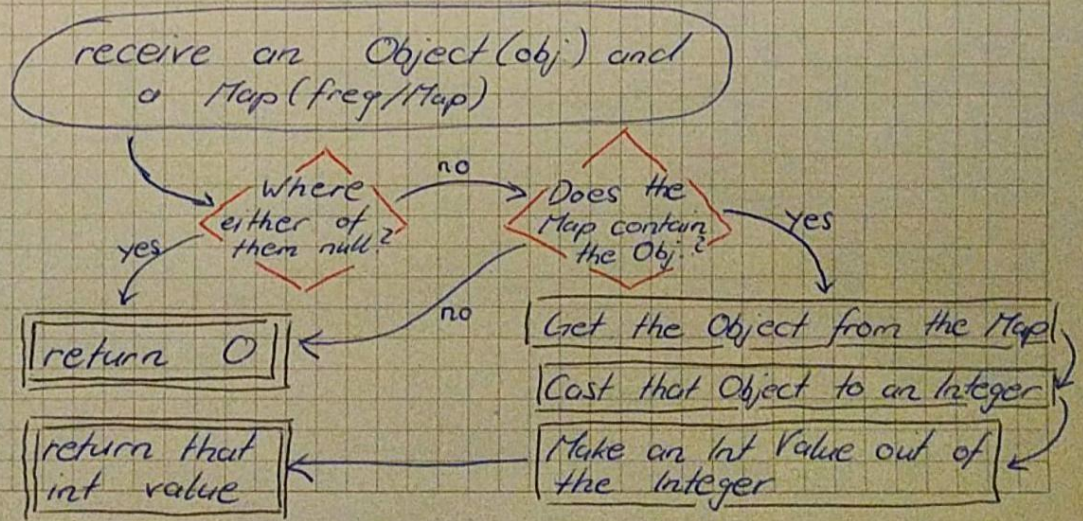 receive an Object(obj) and
a Map(freq/Map)
Where
either of
them null?
yes
no
Does the
Map contain
the Obj.?
yes
no
return 0
Get the Object from the Map
Cast that Object to an Integer
Make an Int Value out of
the Integer
return that
int value